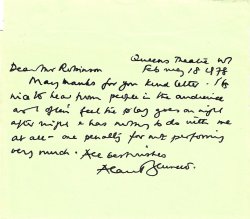 Queens Theatre W1
Feb ruary 18 1978
Dear Mr Robinson
Many thanks for your kind letter. It's
nice to hear from people in the audience
as I often feel the play goes on night
after night & has nothing to do with me
at all - one penalty for not performing
very much. All best wishes
Alan Bennett